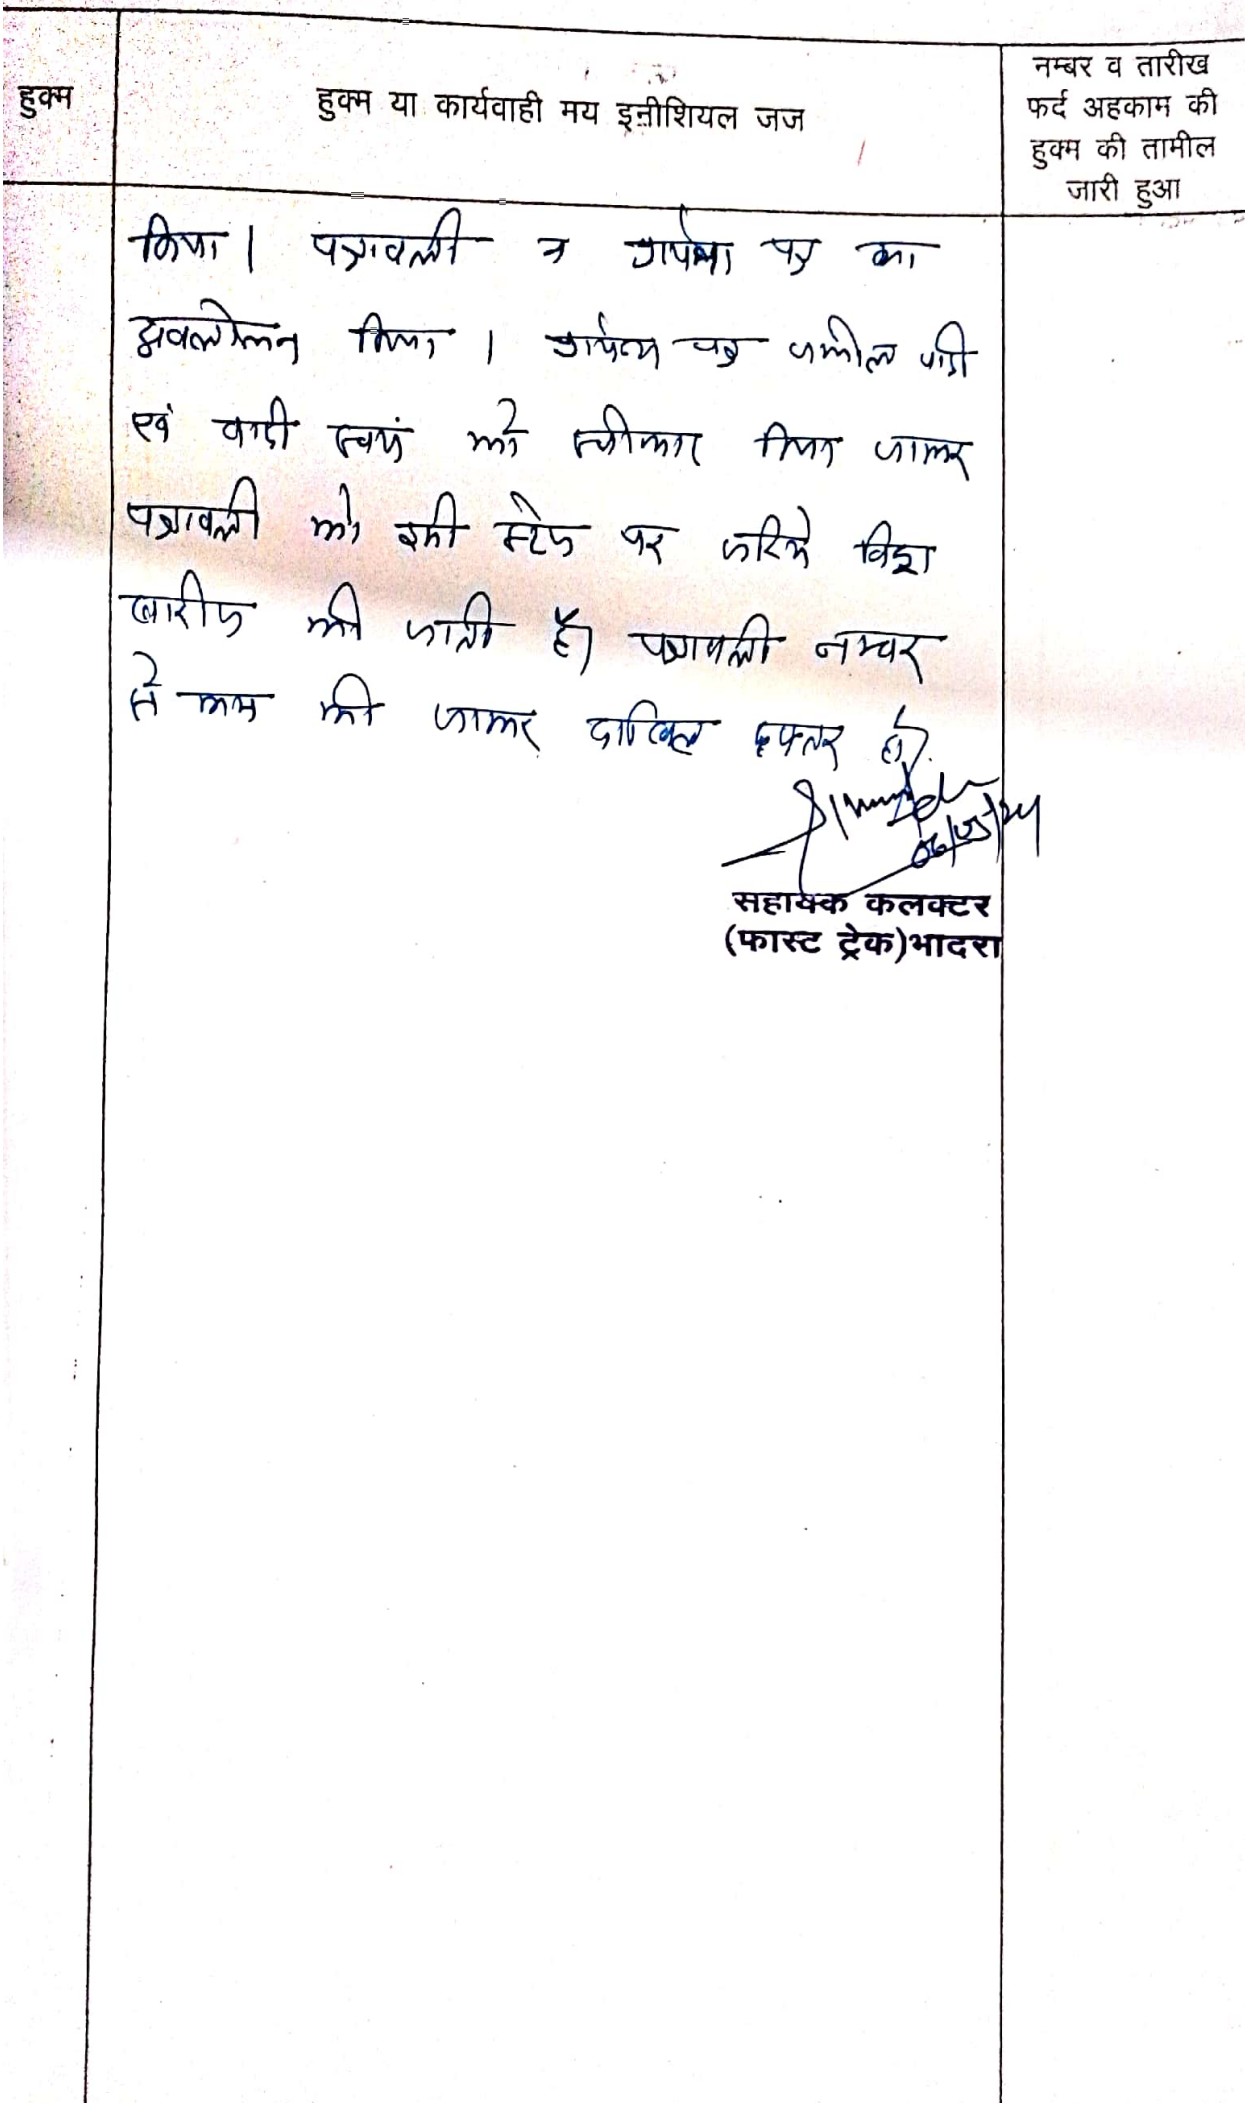 हुक्म
हुक्म या कार्यवाही मय इनीशियल जज
नम्बर व तारीख
फर्द अहकाम की
हुक्म की तामील
जारी हुआ
किया। पत्रावली व प्रार्थना पत्र का
अवलोकन किया। प्रार्थना पत्र वकील वादी
एवं वादी स्वयं को स्वीकार किया जाकर
पत्रावली को इसी स्टेज पर जरिये विड्रा
खारीज की जाती है। पत्रावली नम्बर
से कम की जाकर दाखिल दफ्तर हो।
06/05/24
सहायक कलक्टर
(फास्ट ट्रेक)भादरा